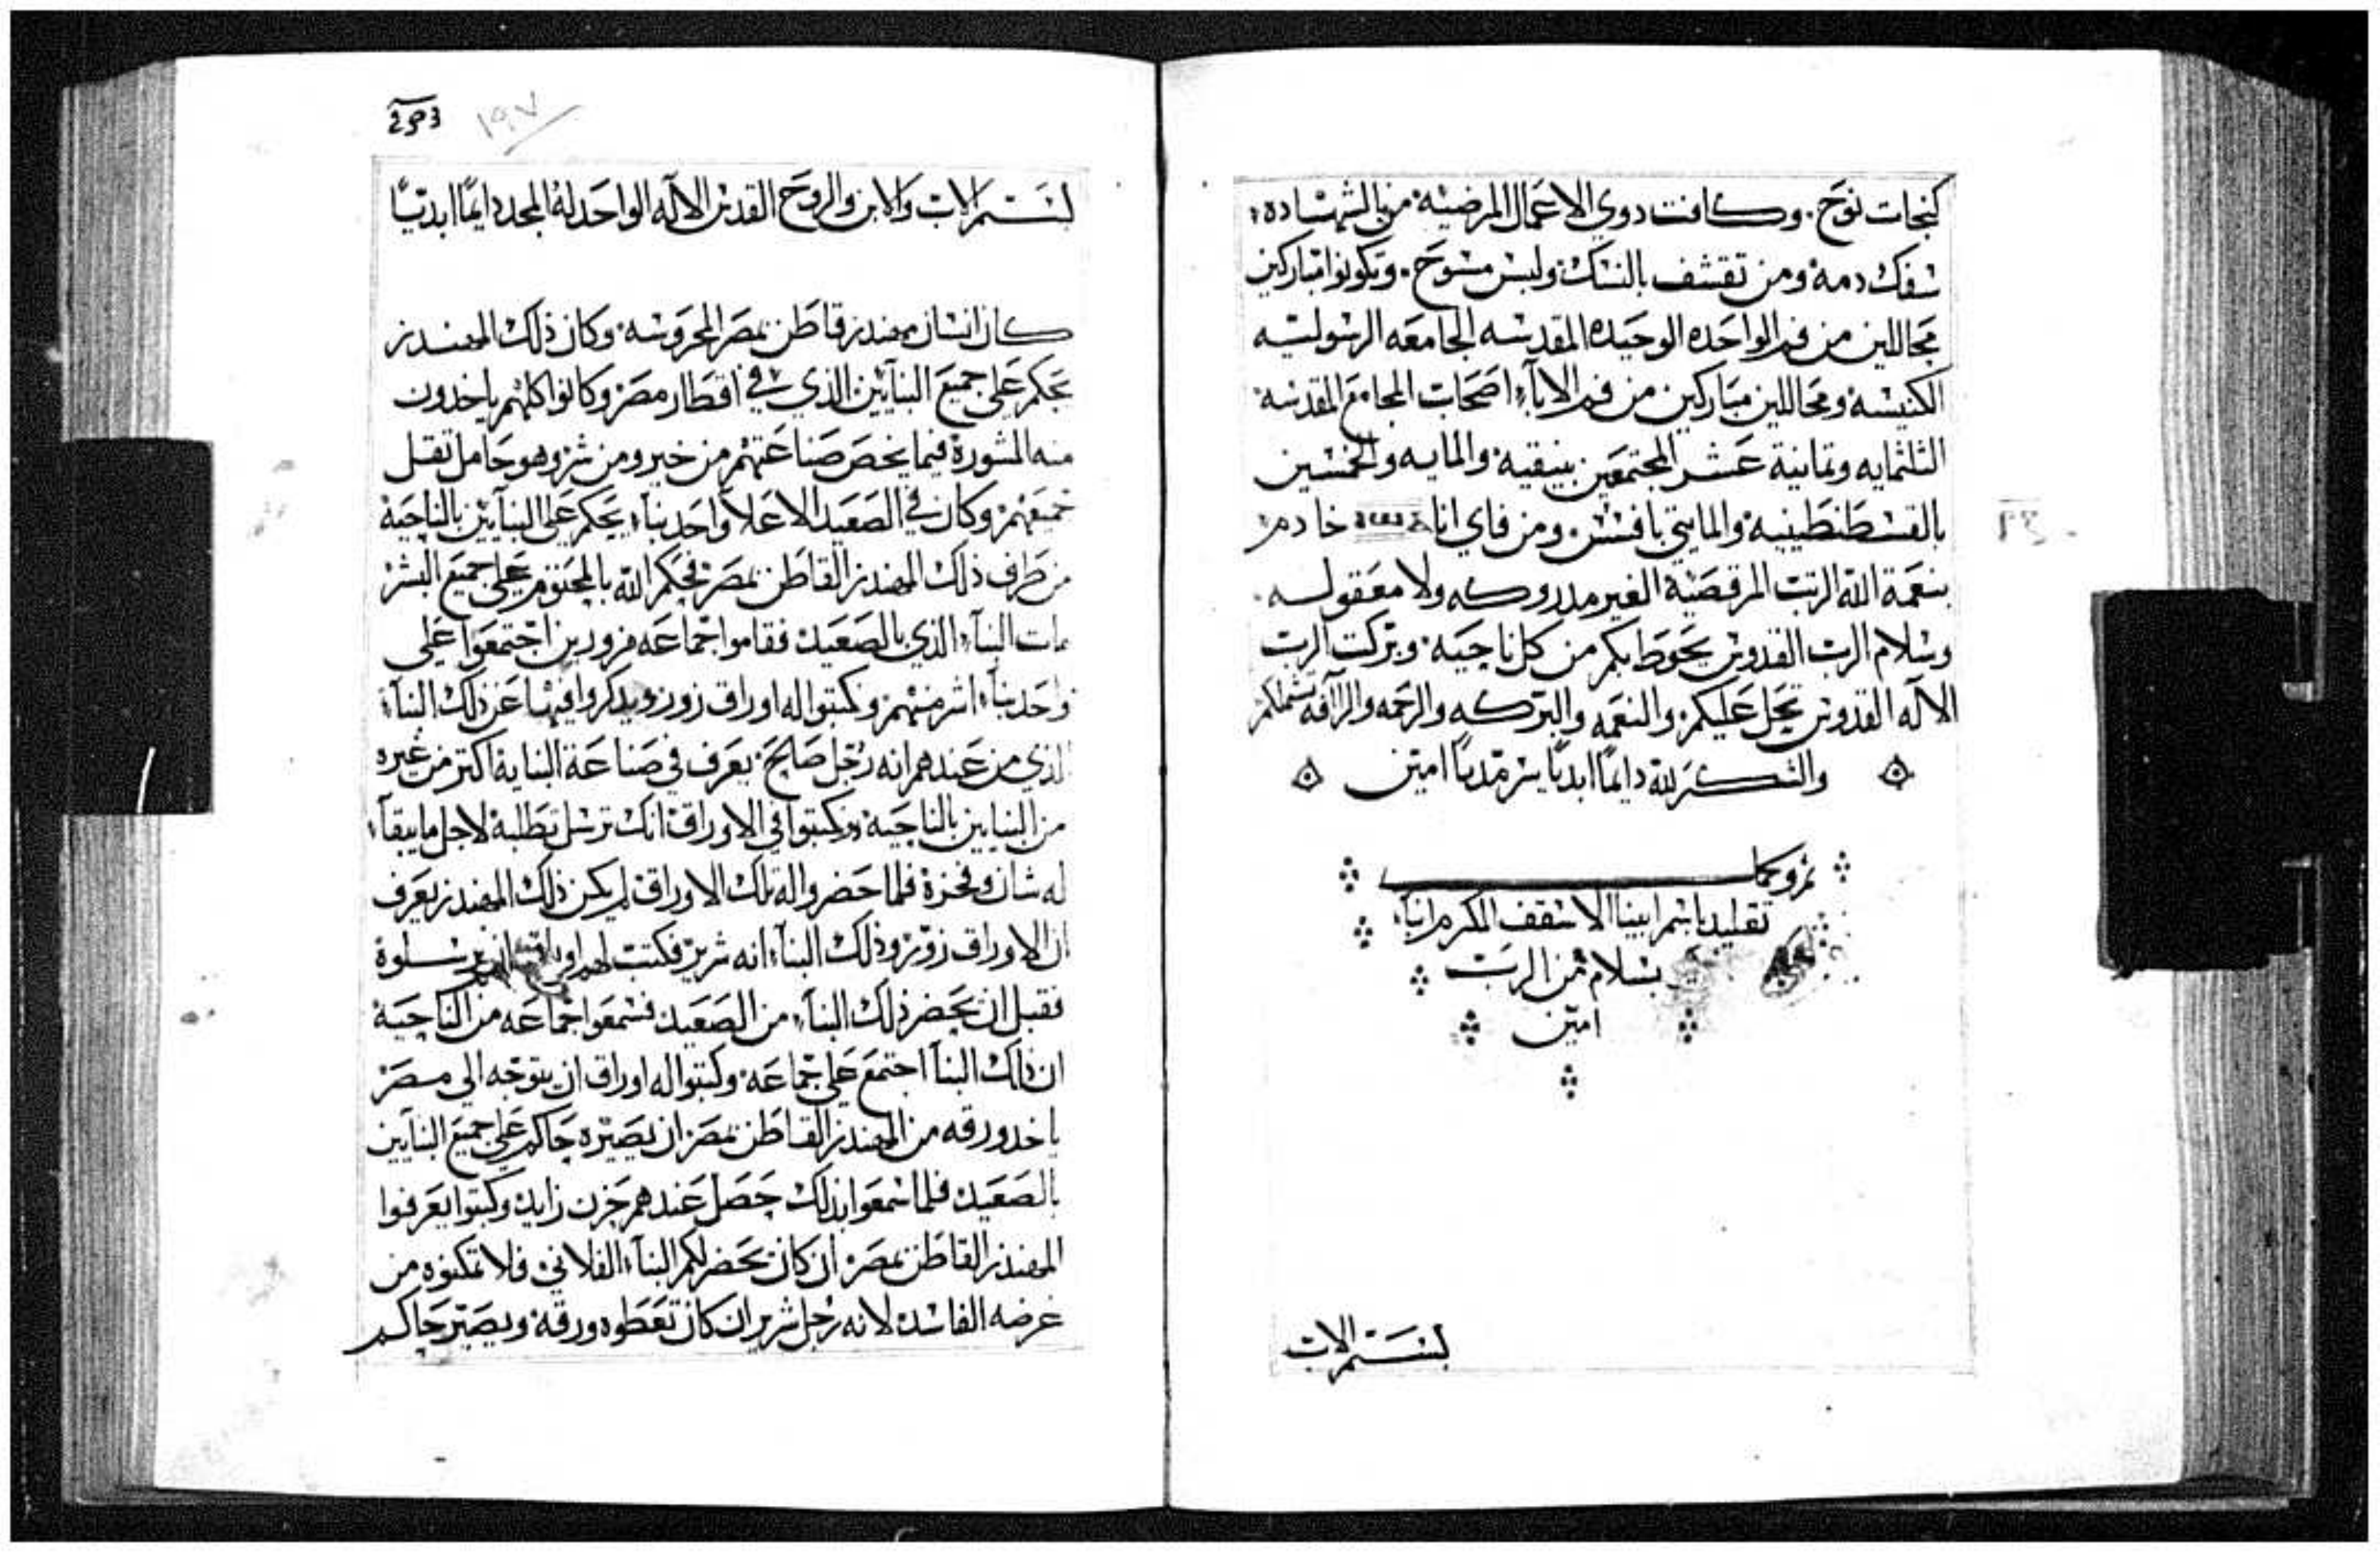 كنجات نوح. وكافت دوي الاعمال المرضيه من بالشهاده
سفك دمه ومن تقشف بالنسك ولبس مسوح. وتكونوا مباركين
محاللين من فم الواحده الوحيده المقدسه الجامعه الرسوليه
الكنيسه ومحاللين مباركين من فم الابآء اصحاب المجامع المقدسه
الثلثمايه وثمانية عشر المجتمعين بنيقيه والمايه والخمسين
بالقسطنطينيه والمايتي بافسس ومن فاي انا خادم
بنعمة الله الرتب المرقصية الغير مدروكه ولا معقوله.
وسلام الرب القدوس يحوط بكم من كل ناحيه وبركت الرب
الاله القدوس تحل عليكم والنعمه والبركه والرحمه والرأفه تشملكم
والشكر لله دايمًا ابديًا سرمديًا امين
تم وكمل
تقليد باسم ابينا الاسقف المكرم انبا
بسلام من الرب
امين
بسم الاب
293
١٩٧
بسم الاب والابن والروح القدس الاله الواحد له المجد دايمًا ابديًا
كان انسان مهندز قاطن بمصر المحروسه وكان ذلك المهندز
يحكم على جميع البنايين الذي في اقطار مصر وكانوا كلهم ياخدون
منه المشورة فيما يخص صناعتهم من خير ومن شر وهو حامل تقل
جميعهم وكان في الصعيد الاعلا واحد بناء يحكم على البنايين بالناحية
من طرف ذلك المهندز القاطن بمصر فحكم الله بالمحتوم على جميع البشر
مات البناء الذي بالصعيد فقاموا جماعه مزورين اجتمعوا على
واحد بناء اشر منهم وكتبوا له اوراق زور ويدكروا فيها عن ذلك البناء
الذي من عندهم انه رجل صالح يعرف في صناعة البنايه اكتر من غيره
من البنايين بالناحيه وكتبوا في الاوراق انك ترسل تطلبه لاجل ما يبقاء
له شان وفخره فلما حضروا له تلك الاوراق لم يكن ذلك المهندز يعرف
ان الاوراق زور وذلك البناء انه شرير فكتب لهم اوراق ان يرسلوه
فقبل ان يحضر ذلك البناء من الصعيد فسمعوا جماعه من الناحيه
ان ذلك البنا اجتمع على جماعه وكتبوا له اوراق ان يتوجه الي مصر
ياخد ورقه من المهندز القاطن بمصر ان يصيره حاكم على جميع البنايين
بالصعيد فلما سمعوا بذلك حصل عندهم حزن زايد وكتبوا يعرفوا
المهندز القاطن بمصر ان كان يحضر لكم البناء الفلاني فلا تمكنوه من
غرضه الفاسد لانه رجل شرير ان كان تعطوه ورقه ويصير حاكم